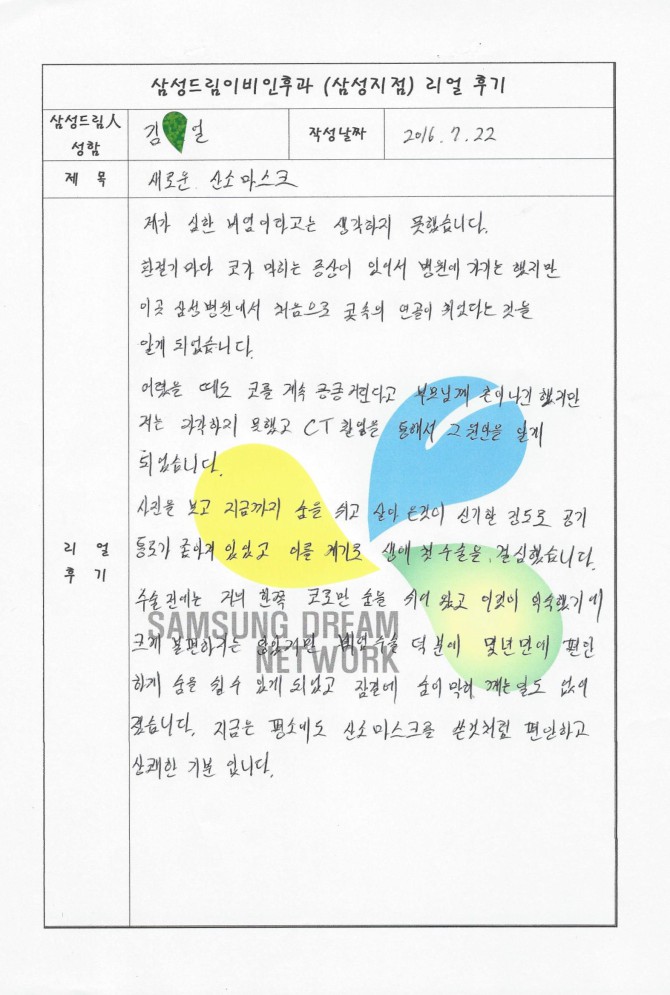 삼성드림이비인후과 (삼성지점) 리얼 후기
삼성드림人 성함
김 일
작성날짜
2016. 7. 22
제 목
새로운 산소마스크
리 얼
후 기
제가 심한 비염이라고는 생각하지 못했습니다.
환절기 마다 코가 막히는 증상이 있어서 병원에 가기는 했지만
이곳 삼성병원에서 처음으로 콧속의 연골이 휘었다는 것을
알게 되었습니다.
어렸을 때도 코를 계속 킁킁거린다고 부모님께 혼이나긴 했지만
저는 자각하지 못했고 CT 촬영을 통해서 그 원인을 알게
되었습니다.
사진을 보고 지금까지 숨을 쉬고 살아 온것이 신기할 정도로 공기
통로가 좁아져 있었고 이를 계기로 생애 첫 수술을 결심했습니다.
수술전에는 거의 한쪽 코로만 숨을 쉬어 왔고 이것이 익숙했기에
크게 불편하지는 않았지만 비염수술 덕분에 몇년만에 편안
하게 숨을 쉴 수 있게 되었고 잠결에 숨이 막혀 깨는일도 없어
졌습니다. 지금은 평소에도 산소마스크를 쓴것처럼 편안하고
상쾌한 기분 입니다.
SAMSUNG DREAM
NETWORK